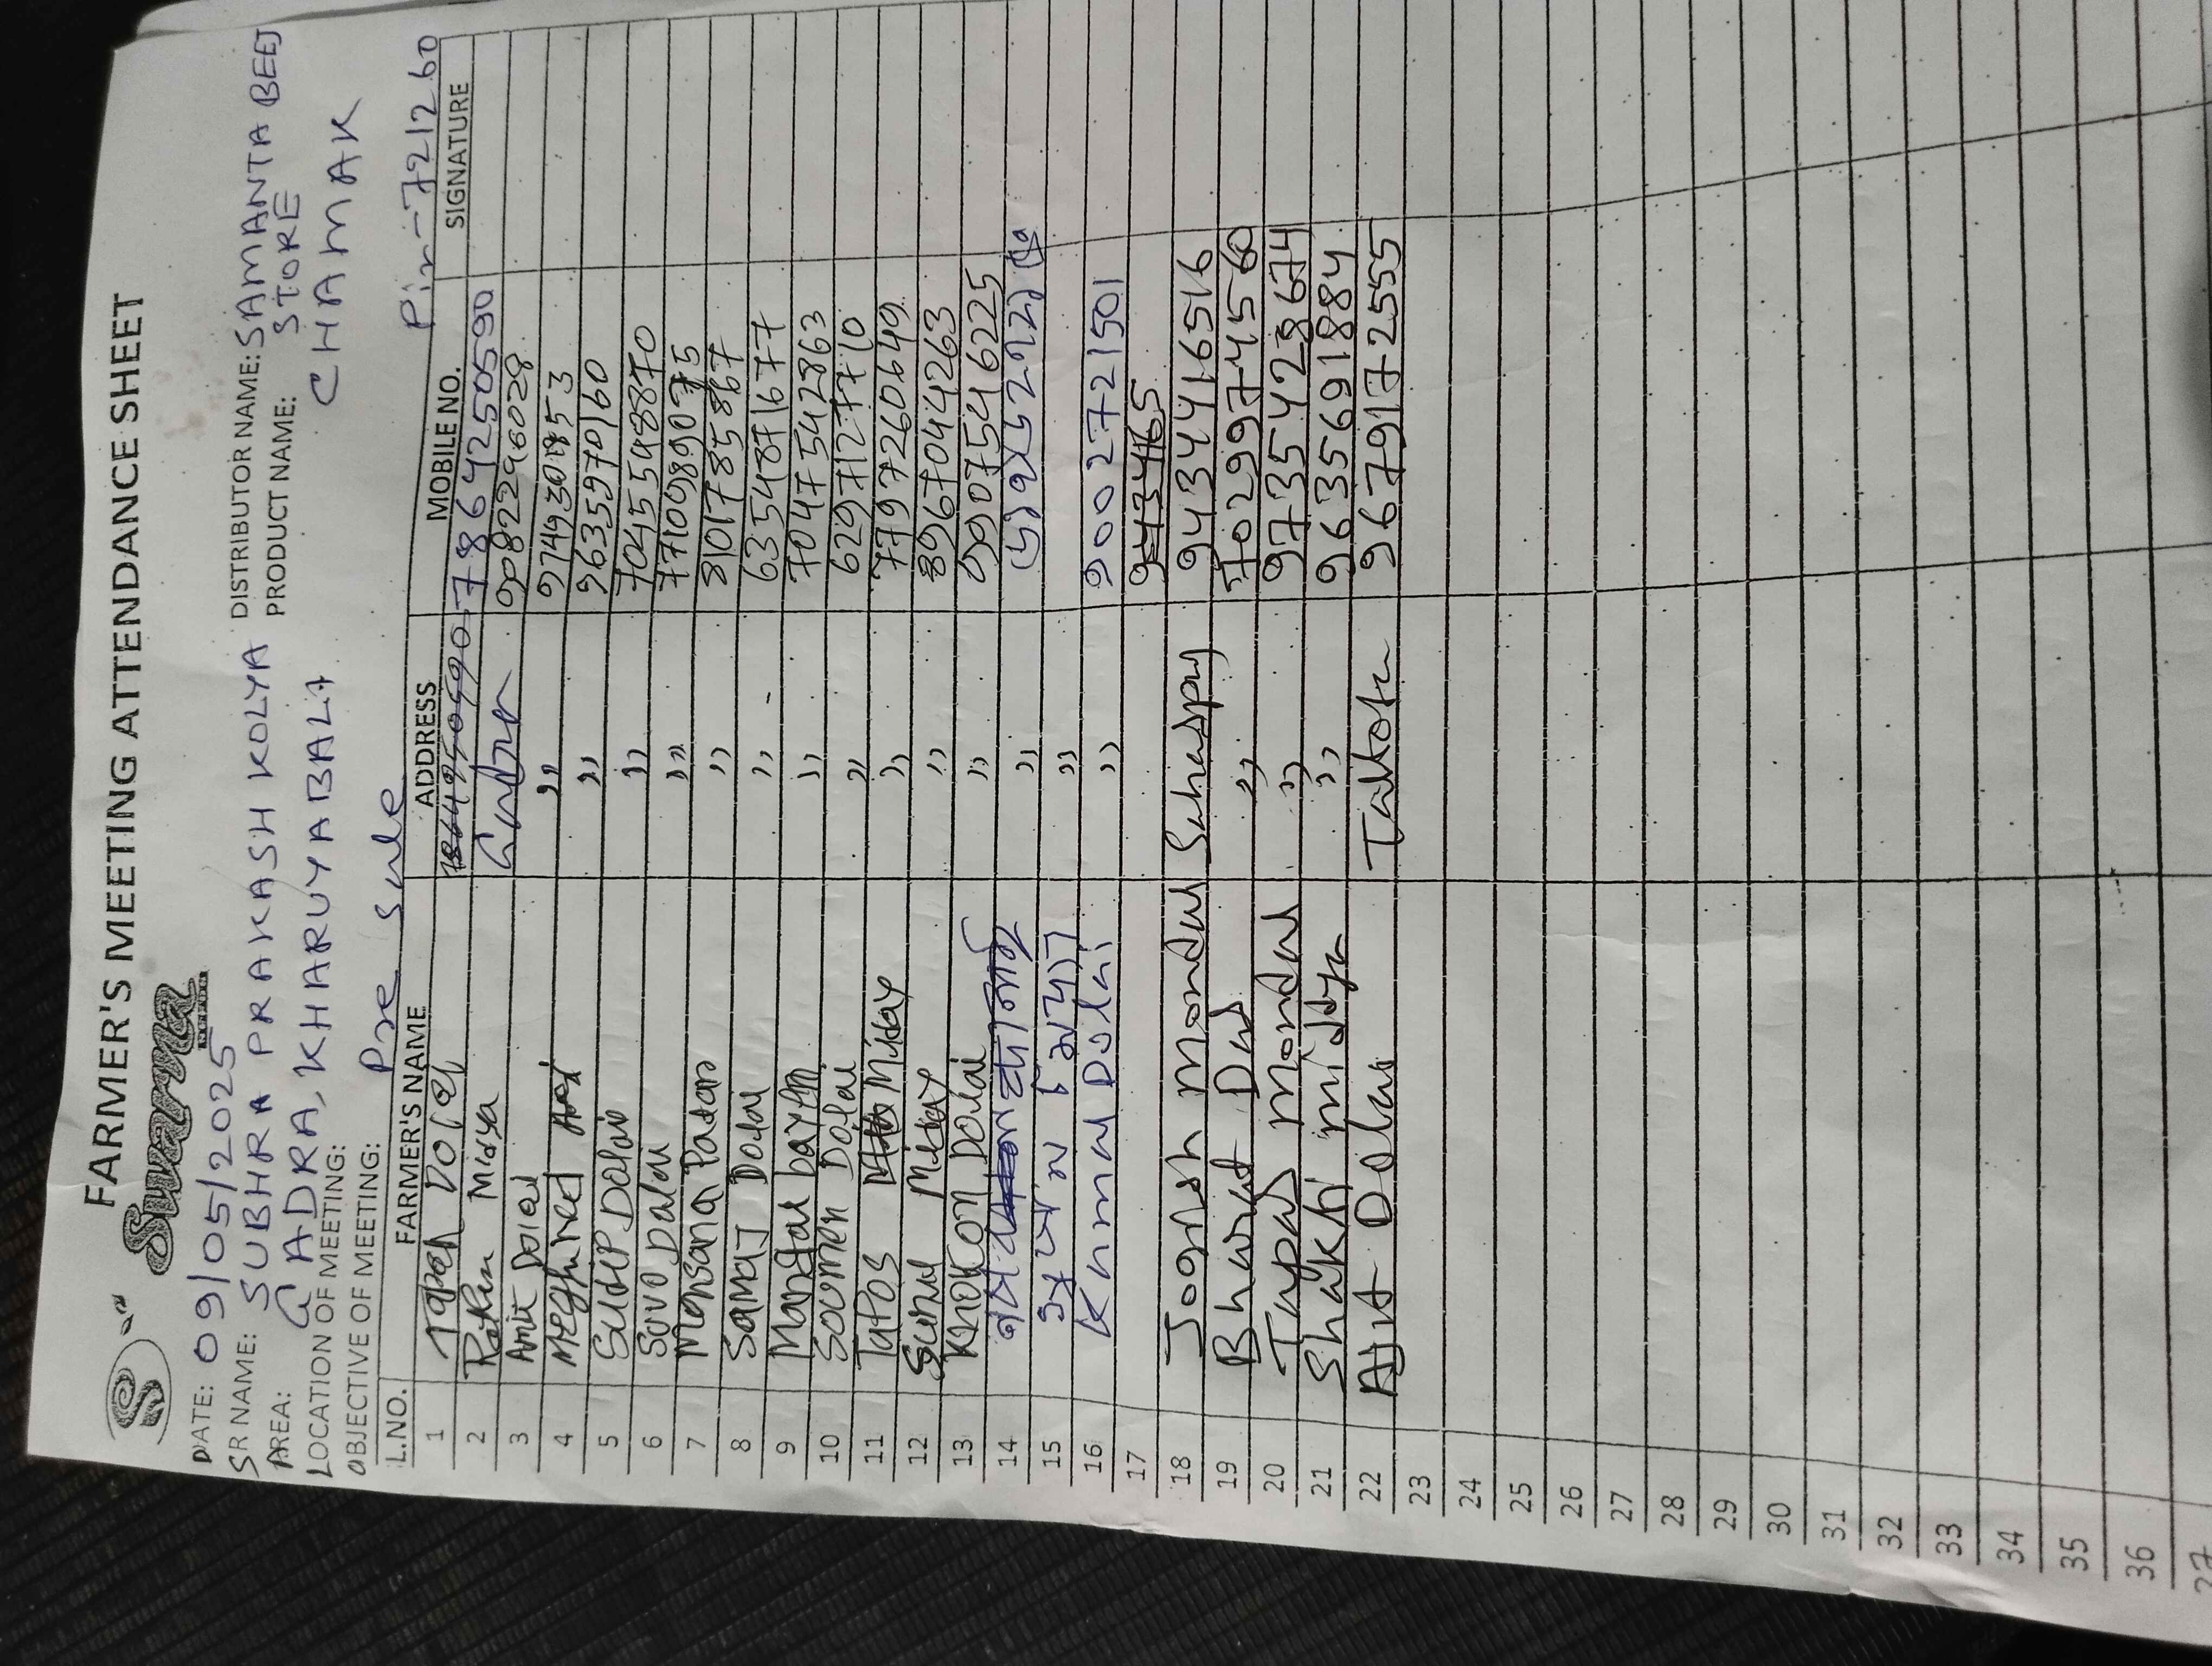 FARMER'S MEETING ATTENDANCE SHEET
Suvarna
DATE: 09/05/2025
SR NAME: SUBHRA PRAKASH KOLYA DISTRIBUTOR NAME: SAMANTA BEEJ STORE
AREA: GADRA, KHARUYABALI PRODUCT NAME: CHAMAK
LOCATION OF MEETING:
OBJECTIVE OF MEETING: Pre Sale Pin-721260
L.NO. FARMER'S NAME ADDRESS MOBILE NO. SIGNATURE
1 Dolai 7864250590 7864250590
2 Ratan Midya 9082296028
3 Amit Dolai ,, 9749308553
4 Meghned ,, 9635970160
5 Sudip Dolai ,, 7045548870
6 Suvo Dalai ,, 7710989075
7 Mansana Patar ,, 8101785867
8 Samaj Dolai ,, 6354871677
9 Mandal ,, 7047542863
10 Soumen Dolai ,, 6297127710
11 Tapos Miday ,, 7797260649
12 Sunil Midday ,, 8967044263
13 Khokon Dolai ,, 9907546225
14 ,,
15 ,,
16 Knmal Dolai ,, 9002721501
17 943465
18 Jogesh Mondal Sahaspur 9434416516
19 Bharat Das ,, 7029974560
20 Tapas Mondal ,, 9735428674
21 Shakti midya ,, 9635691884
22 Ajit Dolai 9679172555
23
24
25
26
27
28
29
30
31
32
33
34
35
36
37